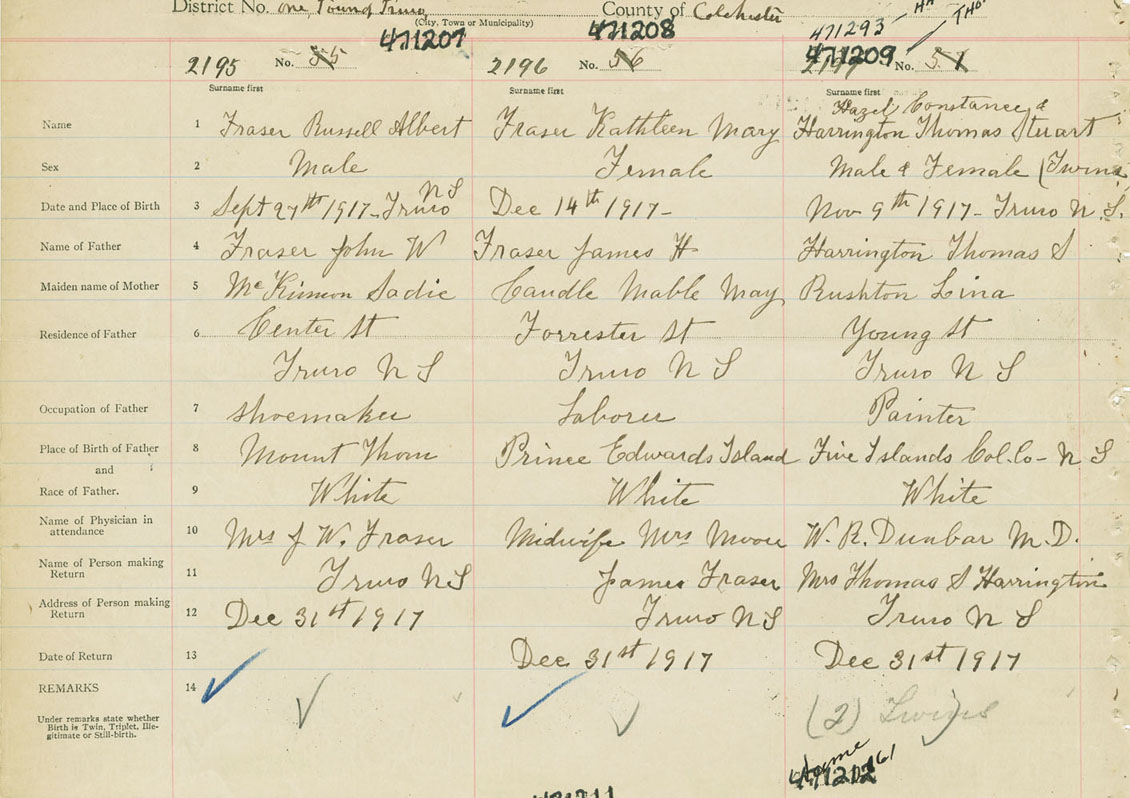 District No. one, Town of Truro County of Colchester
(City, Town or Municipality)
471207 471208 471293
471209
2195 No. 55 2196 No. 56 2197 No. 57
Surname first Surname first Surname first
Hazel Constance &
Name 1 Fraser Russell Albert Fraser Kathleen Mary Harrington Thomas Stuart
Sex 2 Male Female Male & Female (Twins
N S
Date and Place of Birth 3 Sept 27th 1917 - Truro Dec 14th 1917 - Nov 9th 1917 - Truro N. S.
Name of Father 4 Fraser John W Fraser James H Harrington Thomas S
Maiden name of Mother 5 McKinnon Sadie Caudle Mable May Rushton Lina
Residence of Father 6 Center St Forrester St Young St
Truro N S Truro N S Truro N S
Occupation of Father 7 Shoemaker Laborer Painter
Place of Birth of Father 8 Mount Thom Prince Edwards Island Five Islands Col. Co - N S
and
Race of Father. 9 White White White
Name of Physician in
attendance 10 Mrs J W. Fraser Midwife Mrs Moore W. R. Dunbar M. D.
Name of Person making
Return 11 Truro N S James Fraser Mrs Thomas S Harrington
Address of Person making
Return 12 Dec 31st 1917 Truro N S Truro N S
Date of Return 13 Dec 31st 1917 Dec 31st 1917
REMARKS 14
(2) Twins
Under remarks state whether
Birth is Twin, Triplet, Ille-
gitimate or Still-birth.
471211